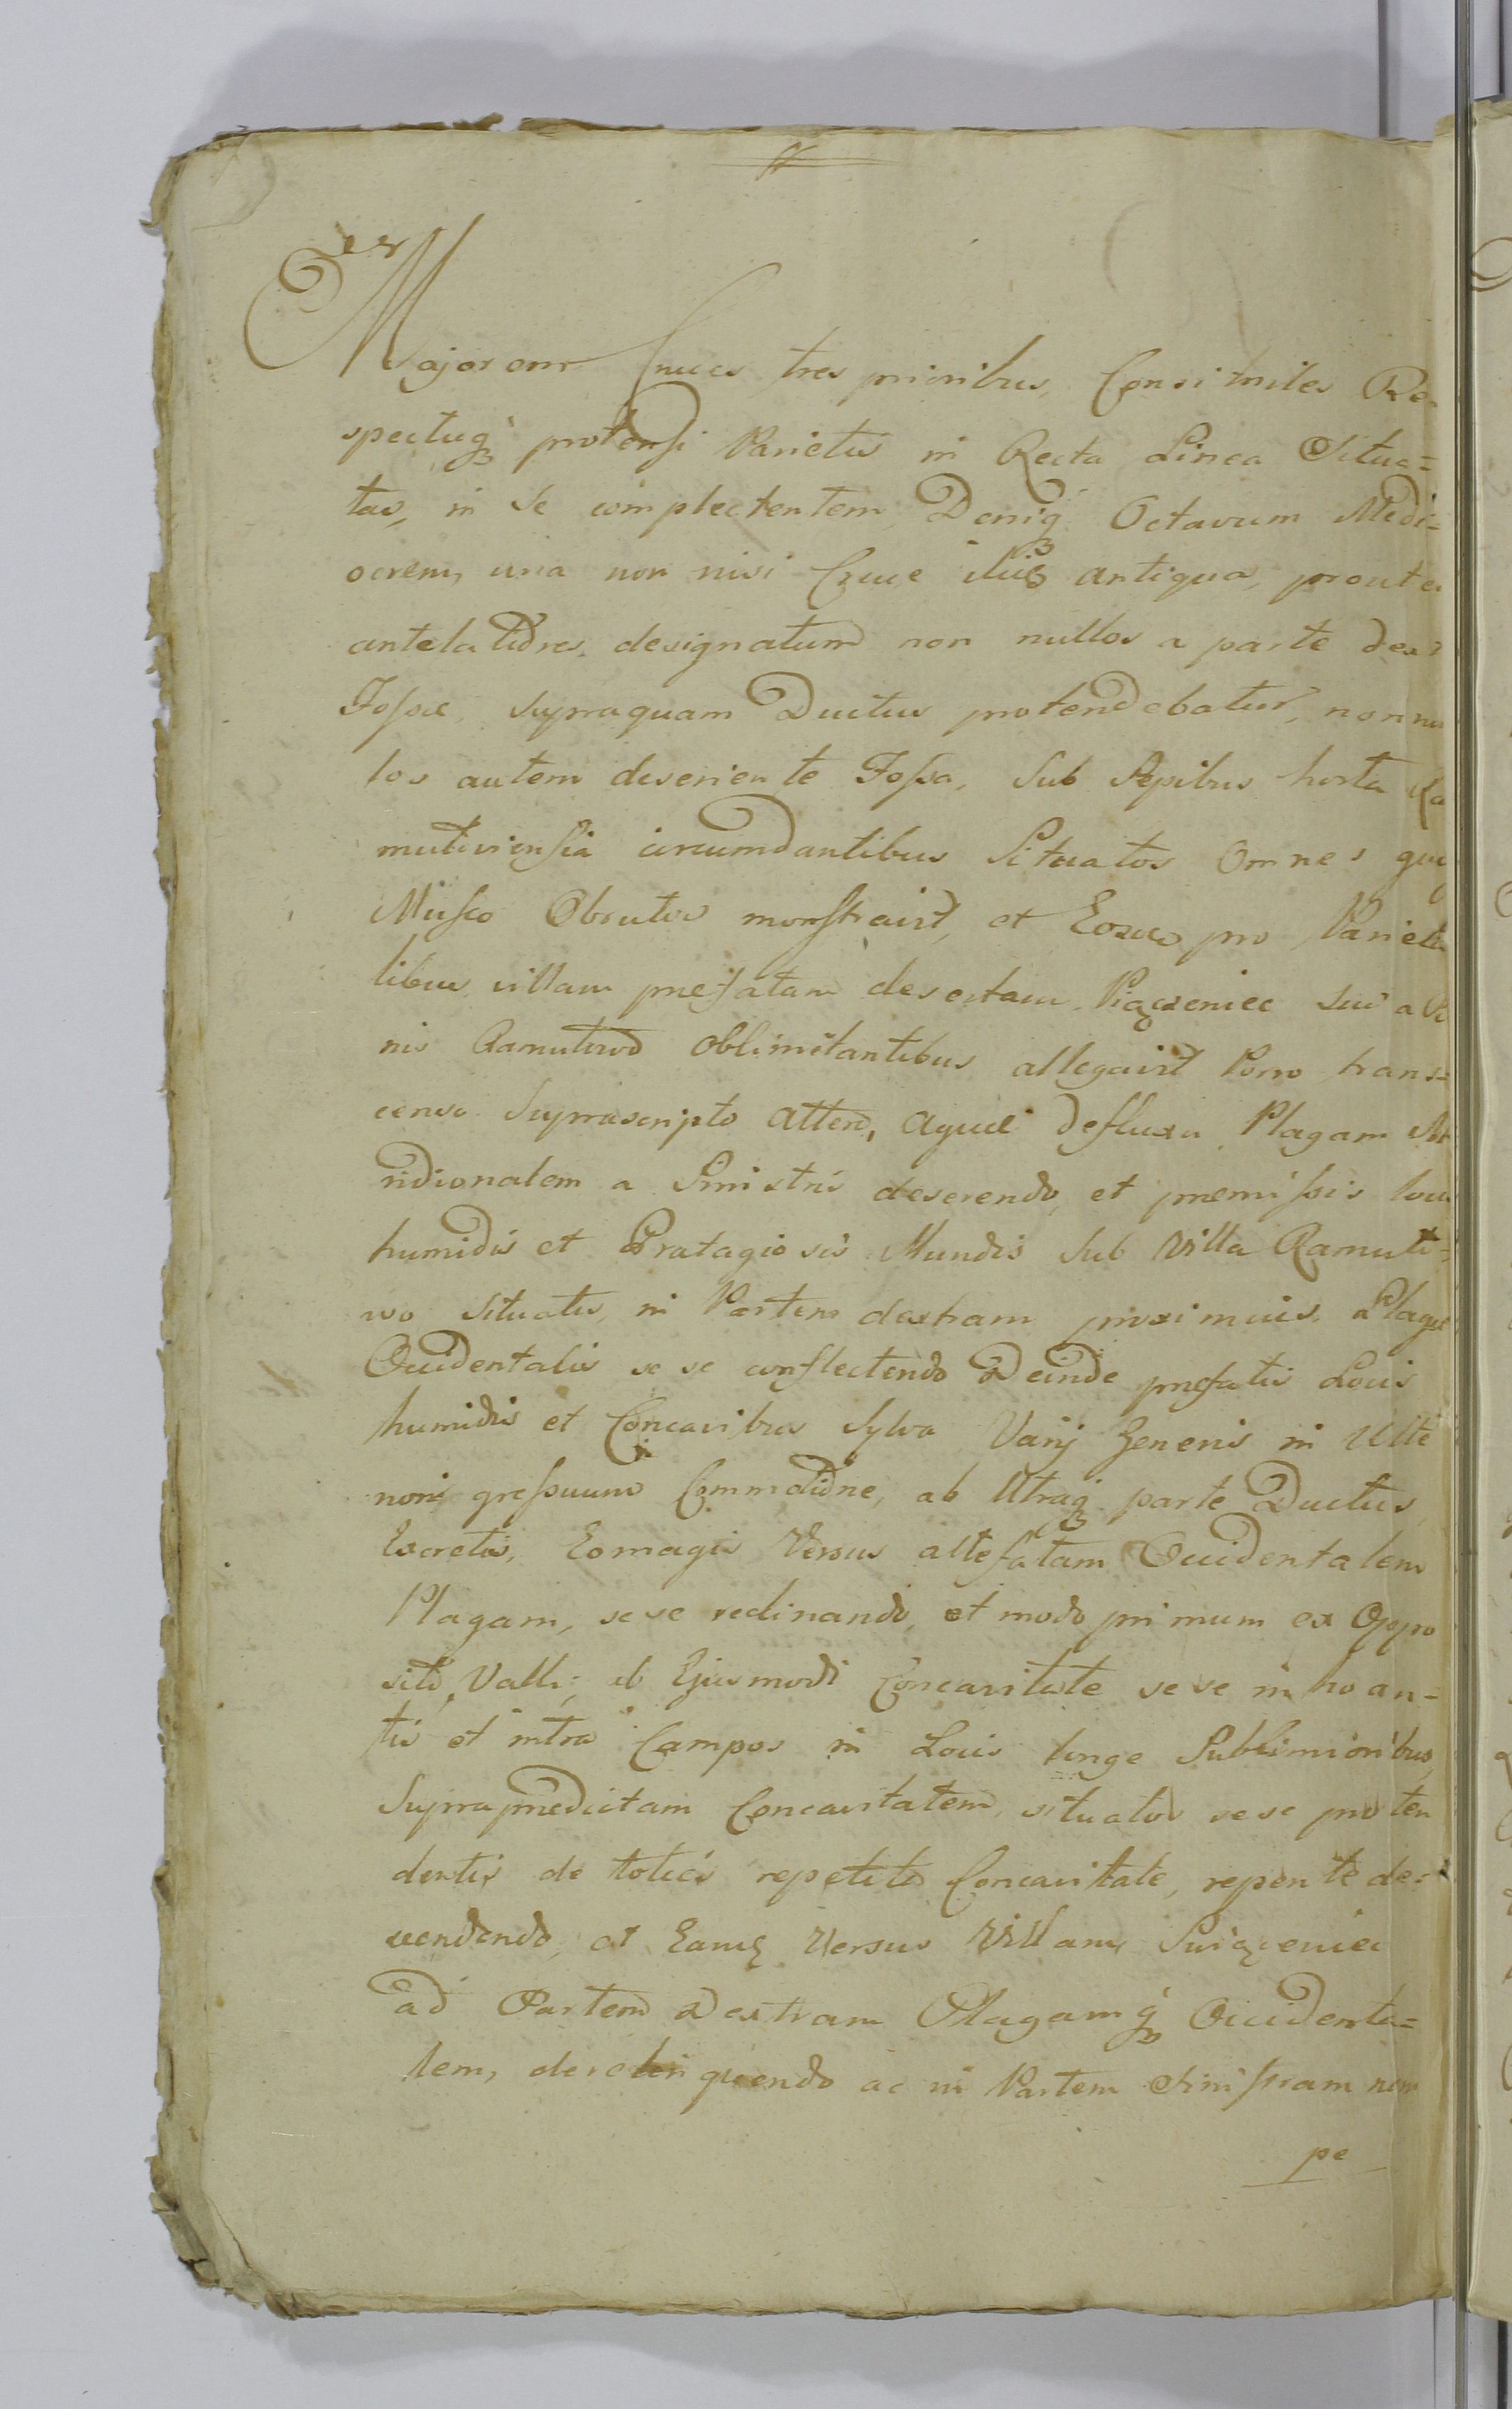 Majorem Cruces tres prioribus, Consimiles Re
spectuq3 protensi Parietis in Recta Linea Situa=
tas, in se complectentem, Deniq3 Octavum Medi=
ocrem, una non nisi Cruce antiqua, prout
antelatiores designatum non nullos a parte dex
Fossæ, supraquam Ductus protendebatur, non nu
los autem deseriente Fossa, Sub Sepibus horta Ra
mutiviensia circumdantibus Situatos Omnes
Musco Obrutos monstravit, et Eosce pro Pariet
libus villam prefatam desertam Piączeniec
nis Ramutiwo Oblimitantibus allegavit Porro trans=
censo Suprascripto atten, aquæ defluxu Plagam Me
ridionalem a Sinistris deserendo, et premissis
humidis et Pratagiosis Mundis Sub Villa Ramuti=
wo situatis, in Partem dextram proximius Plagæ
Occidentalis se se conflectendo Deinde prefatis Locis
humidis et Concavibus Sylva Varij Generis in Ulte
rioris gressuum Commotione, ab Utraq3 parte Ductus
Excretis, Eomagis Versus altefatam Occidentalem
Plagam, sese reclinando, et modo primum ex Oppo
sito Valli, ab Ejusmodi Concavitate sese inhoan=
tis et intra Campos in Locis longe Sublimioribus,
Suprapredictam Concavitatem, situatos sese proten
dentis de toties repetita Concavitate, repente de=
scendendo, et Eamq3 Versus Villam
ad Partem Dextram Plagamq3 Occidenta=
lem, derelinquendo ac in Partem Sinistram nem
pe